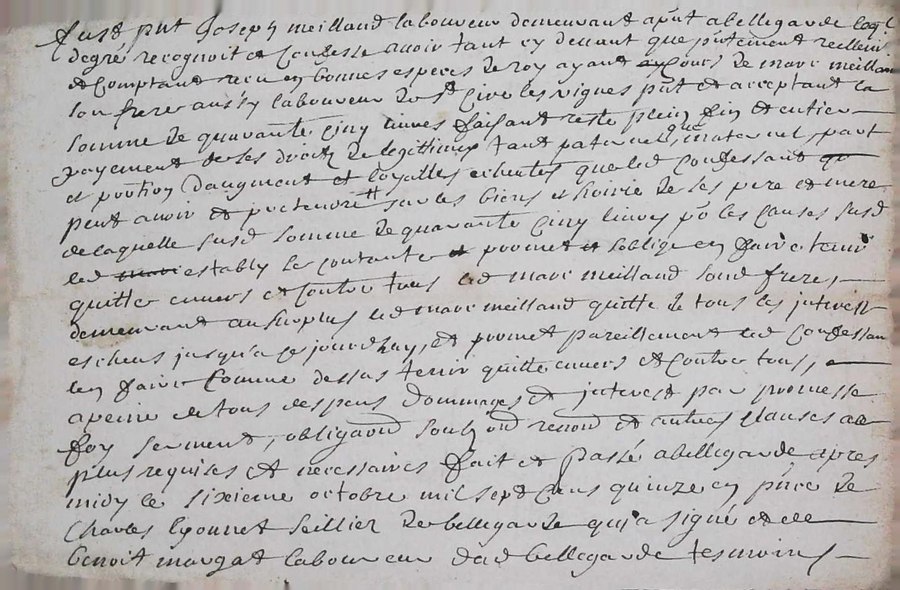 fust pnt Joseph meilland laboureur demeurant apnt abellegarde leql
degré recognoit et Confesse avoir tant cy devant que pntement reellemt
et Comptant receu en bonnes especes de roy ayant Cours de marc meilland
son frere aussy laboureur de st Cire les vignes pnt et acceptant la
somme de quarante Cinq livres faisant reste plein fin et entier
payement de ses droitz de legittimes tant paternel que maternel, part
et portion daugment et loyalles echeutes que led Confessant
peut avoir et pretendre sur les biens et hoirie de ses pere et mere
de laquelle susd somme de quarante Cinq livres po les Causes susd
led estably se contante promet soblige en faire tenir
quitte envers et Contre tous led marc meilland sond frere
demeurant au surplus led marc meilland quitte de tous les interest
escheus jusqu'a ce jourdhuy, et promet pareillement led Confessant
len faire Comme dessus tenir quitte envers et Contre tous,
apeine de tous despens dommages et interest par promesse
foy serment, obligaon soubz on renon et autres Clauses a ce
plus requises et necessaires fait et passé abellegarde apres
midy le sixieme octobre mil sept Cens quinze en pnce de
Charles lyonnet sellier de bellegarde qui a signé et de
benoit margat laboureur dud bellegarde tesmoins